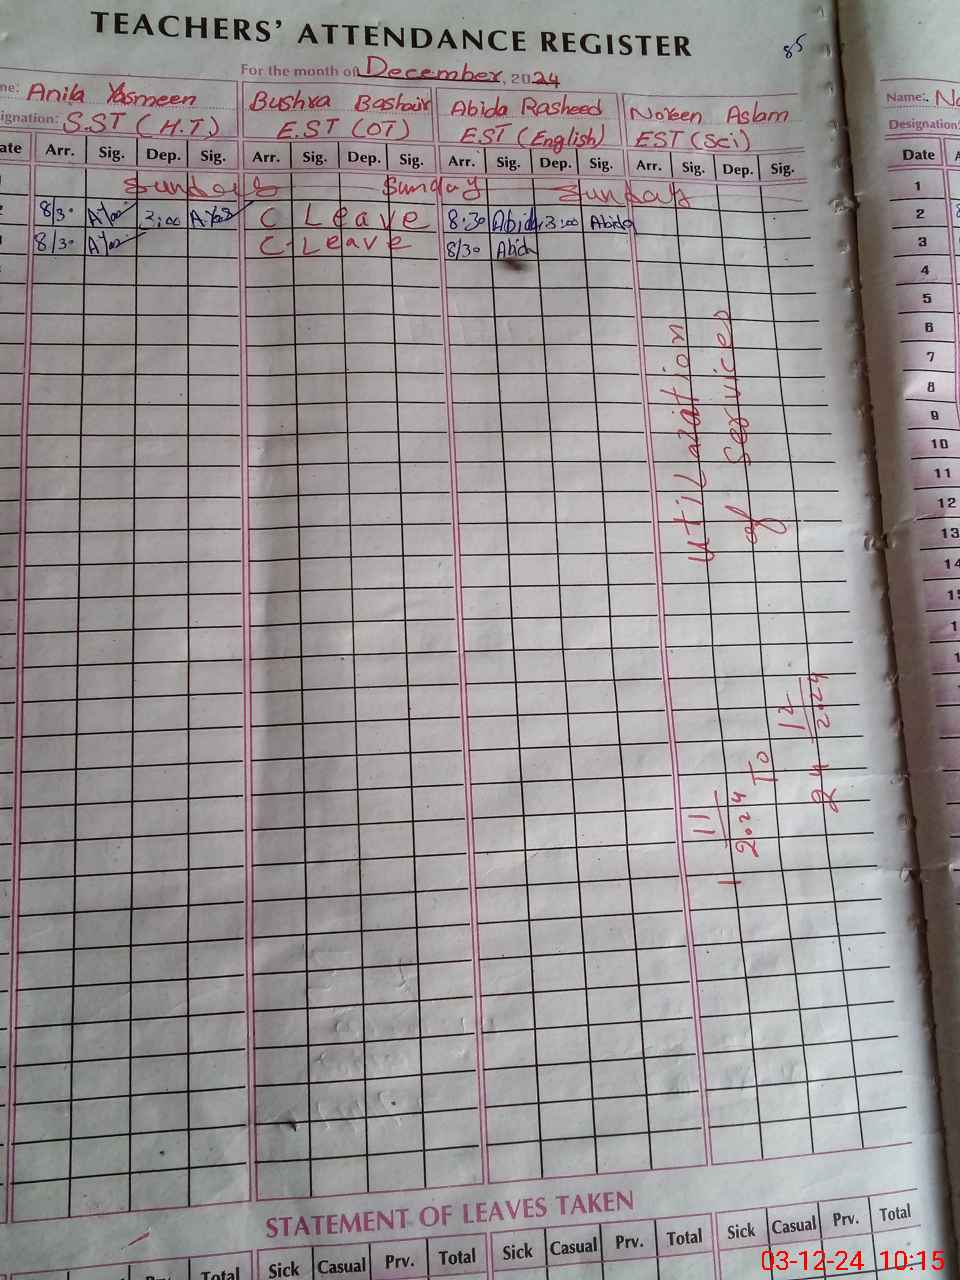 TEACHERS' ATTENDANCE REGISTER
85
For the month of December, 2024
ne: Anila Yasmeen Bushra Bashair Abida Rasheed Noreen Aslam
ignation: S.ST (H.T) E.ST (OT) EST (English) EST (Sci)
ate Arr. Sig. Dep. Sig. Arr. Sig. Dep. Sig. Arr. Sig. Dep. Sig. Arr. Sig. Dep. Sig.
Sunday Sunday Sunday
8/30 2:00 C Leave 8:30 Abida 3:00 Abida
8/30 C-Leave 8/30 Abida
utilazation
of Services
1 11/2024 To 24 12/2024
STATEMENT OF LEAVES TAKEN
Total Sick Casual Prv. Total Sick Casual Prv. Total Sick Casual Prv. Total
Name: No
Designation:
Date
1
2
3
4
5
6
7
8
9
10
11
12
13
14
03-12-24 10:15